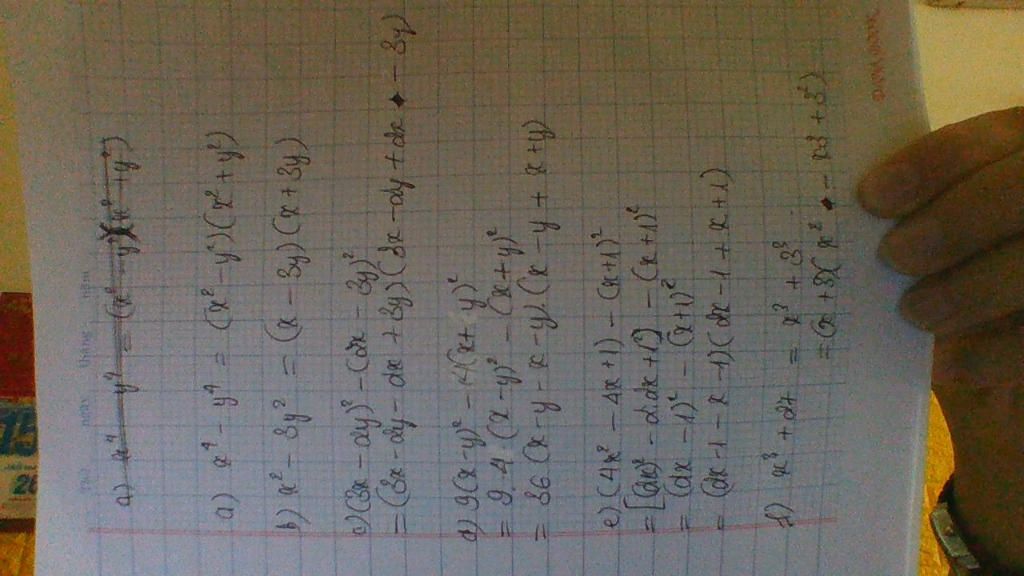 a) x⁴ - y⁴ = (x² - y²)(x² + y²)
a) x⁴ - y⁴ = (x² - y²)(x² + y²)
b) x² - 3y² = (x - 3y)(x + 3y)
c) (3x - 2y)² - (2x - 3y)²
= (3x - 2y - 2x + 3y)(3x - 2y + 2x - 3y)
d) 9(x - y)² - 4(x + y)²
= 9.4 (x - y)² - (x + y)²
= 36 (x - y - x - y)(x - y + x + y)
e) (4x² - 4x + 1) - (x + 1)²
= [(2x)² - 2.2x + 1²] - (x + 1)²
= (2x - 1)² - (x + 1)²
= (2x - 1 - x - 1)(2x - 1 + x + 1)
f) x³ + 27 = x³ + 3³
= (x + 3)(x² - x3 + 3²)